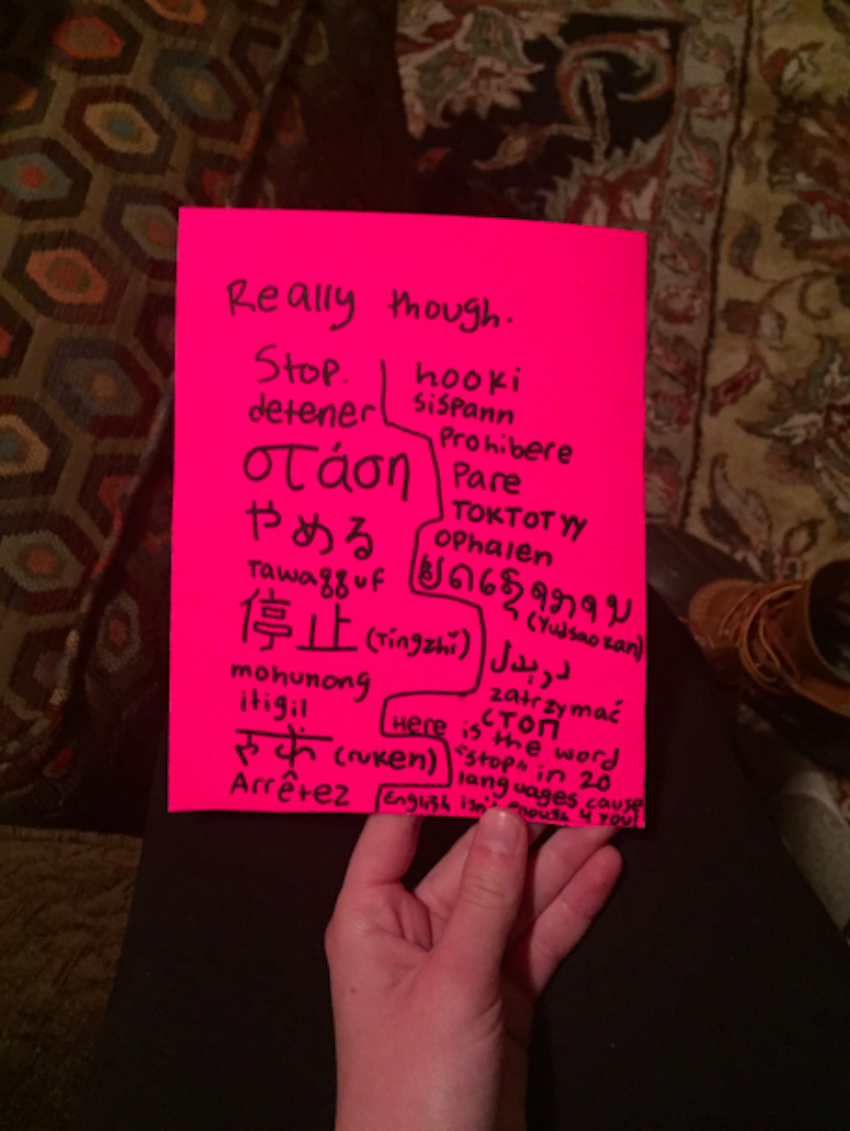 Really though.
Stop.
detener
στάση
やめる
Tawagguf
停止 (Tíngzhǐ)
mohunong
itigil
(ruken)
Arrêtez
hooki
sispann
Prohibere
Pare
ТОКТОТУУ
ophalen
(Yudsao kan)
دريدل
zatrzymać
стоп
Here is the word
"stop" in 20
languages cause
English isn't enough 4 you!